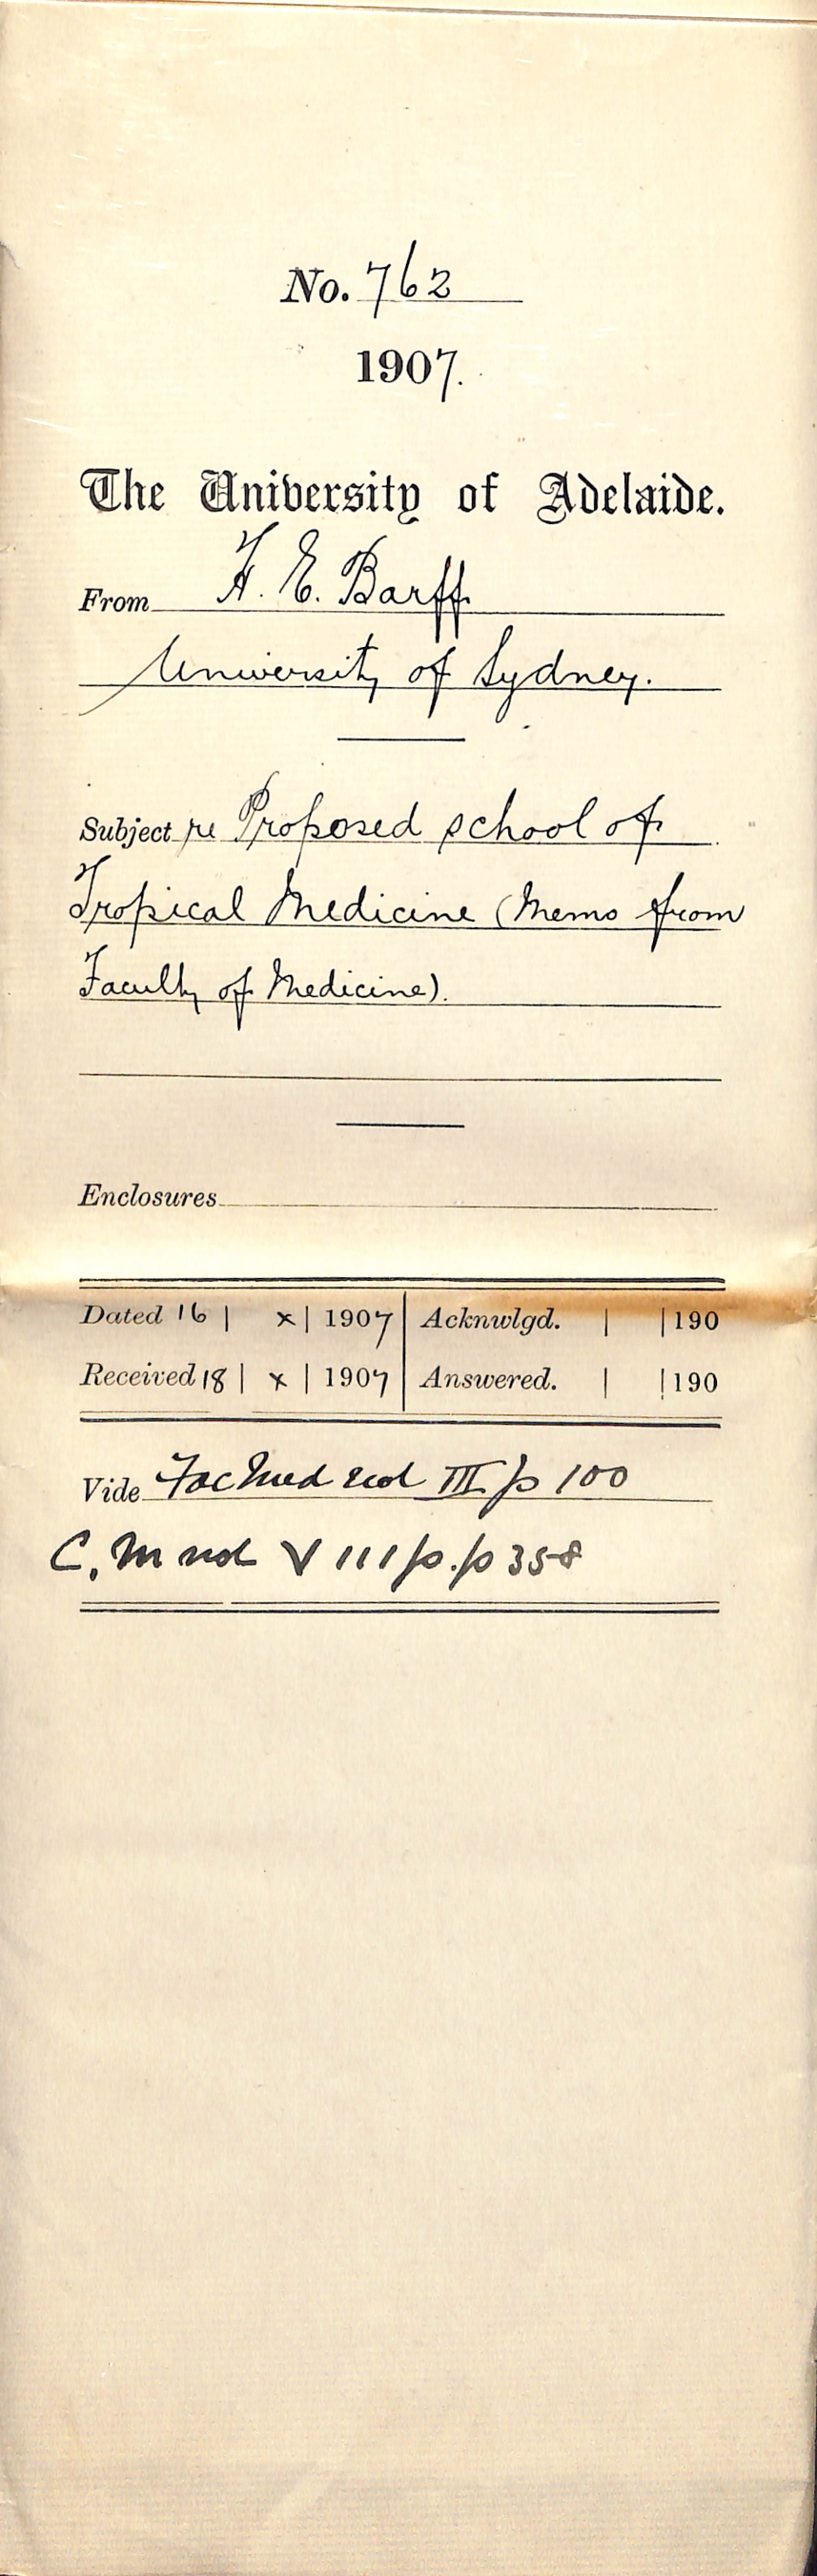 No. 762
1907.
The University of Adelaide.
From H. E. Barff
University of Sydney.
Subject re Proposed school of
Tropical Medicine (Memo from
Faculty of Medicine).
Enclosures
Dated 16 | x | 1907 | Acknwlgd. | | 190
Received 18 | x | 1907 | Answered. | | 190
Vide Fac Med vol III p 100
C. M vol VIII p.p 358